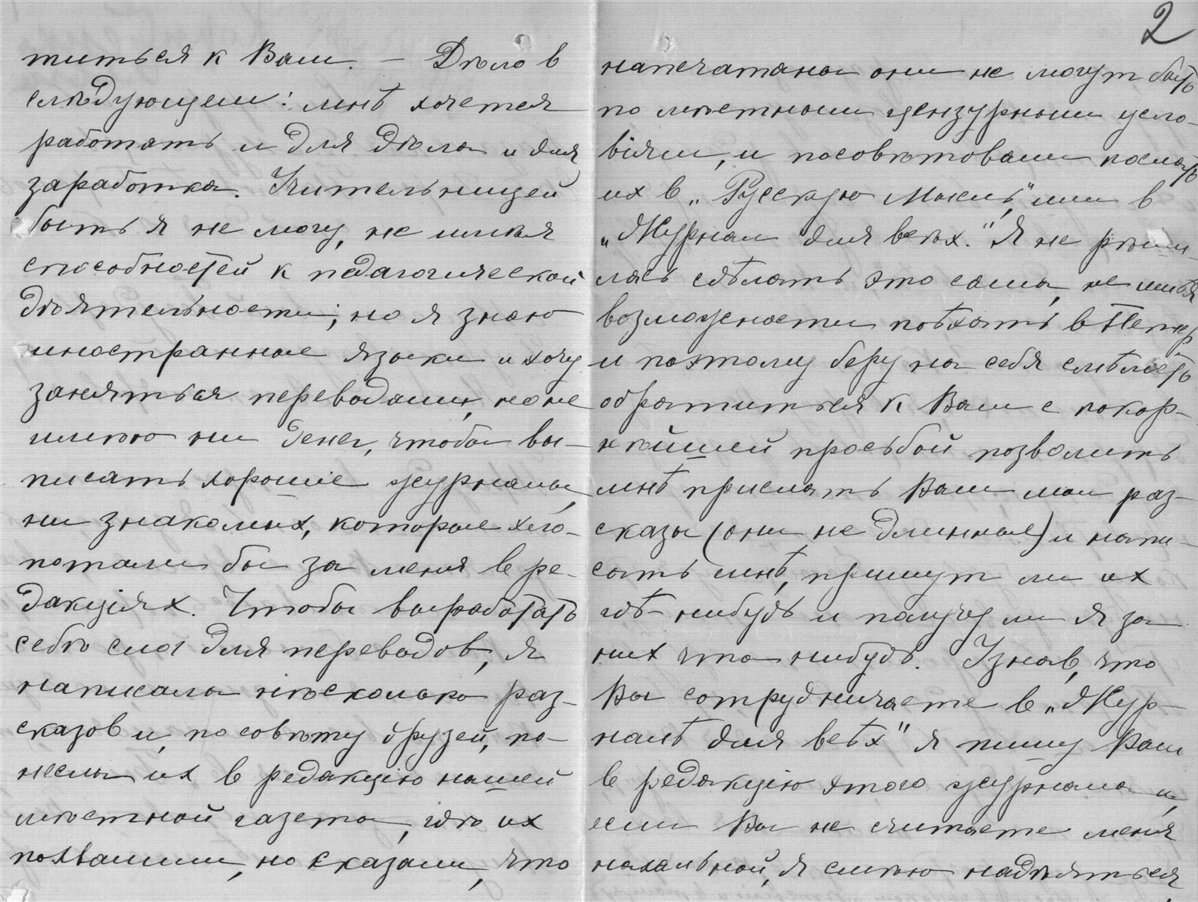 титься к Вам. – Дѣло в
слѣдующем: мнѣ хочется
работать и для дѣла и для
заработка. Учительницей
быть я не могу, не имѣя
способностей к педагогической
дѣятельности, но я знаю
иностранные языки и хочу
заняться переводами, но не
имѣю ни денег, чтобы вы-
писать хорошіе журналы,
ни знакомых, которые хло-
потали бы за меня в ре-
дакціях. Чтобы выработать
себѣ слог для переводов, я
написала нѣсколько раз-
сказов и, по совѣту друзей, по-
несла их в редакцію нашей
мѣстной газеты, гдѣ их
похвалили, но сказали, что
2
напечатаны они не могут быть
по мѣстным цензурным усло-
віям, и посовѣтовали послать
их в „Русскую Мысль", или в
„Журнал для всѣх." Я не рѣши-
лась сдѣлать это сама, не имѣя
возможности поѣхать в Петер
и поэтому беру на себя смѣлость
обратиться к Вам с покор-
нѣйшей просьбой позволить
мнѣ прислать Вам мои раз-
сказы (они не длинные) и напи-
сать мнѣ, примут ли их
гдѣ-нибудь и получу ли я за
них что нибудь. Узнав, что
Вы сотрудничаете в „Жур-
налѣ для всѣх" я пишу Вам
в редакцію этого журнала и,
если Вы не считаете меня
нахальной, я смѣю надѣяться,